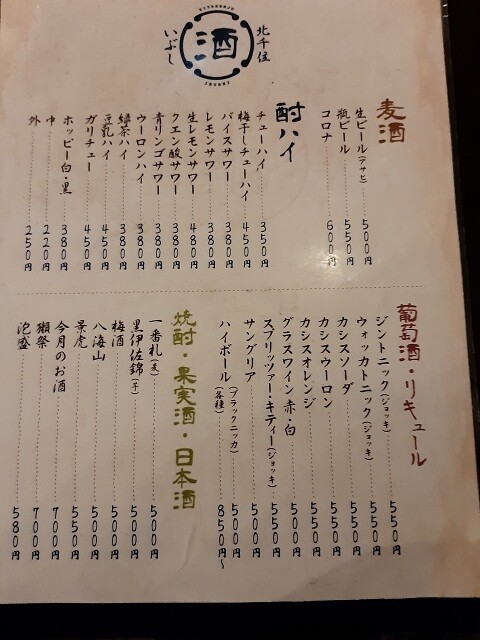 KITASENJU
北千住
酒
いぶし
IBUSHI
麦酒
生ビール(アサヒ) 500円
瓶ビール 550円
コロナ 600円
酎ハイ
チューハイ 350円
梅干しチューハイ 450円
バイスサワー 380円
レモンサワー 380円
生レモンサワー 480円
クエン酸サワー 380円
青リンゴサワー 380円
ウーロンハイ 380円
緑茶ハイ 380円
豆乳ハイ 450円
ガリチュー 450円
ホッピー白・黒 380円
中 220円
外 250円
葡萄酒・リキュール
ジントニック(ジョッキ) 550円
ウォッカトニック(ジョッキ) 550円
カシスソーダ 550円
カシスウーロン 550円
カシスオレンジ 550円
グラスワイン 赤・白 500円
スプリッツァー・キティー(ジョッキ) 550円
サングリア 500円
ハイボール(ブラックニッカ) 500円
(各種) 850円〜
焼酎・果実酒・日本酒
一番札(麦) 500円
黒伊佐錦(芋) 500円
梅酒 500円
八海山 500円
景虎 550円
今月のお酒 700円
獺祭 700円
泡盛 580円